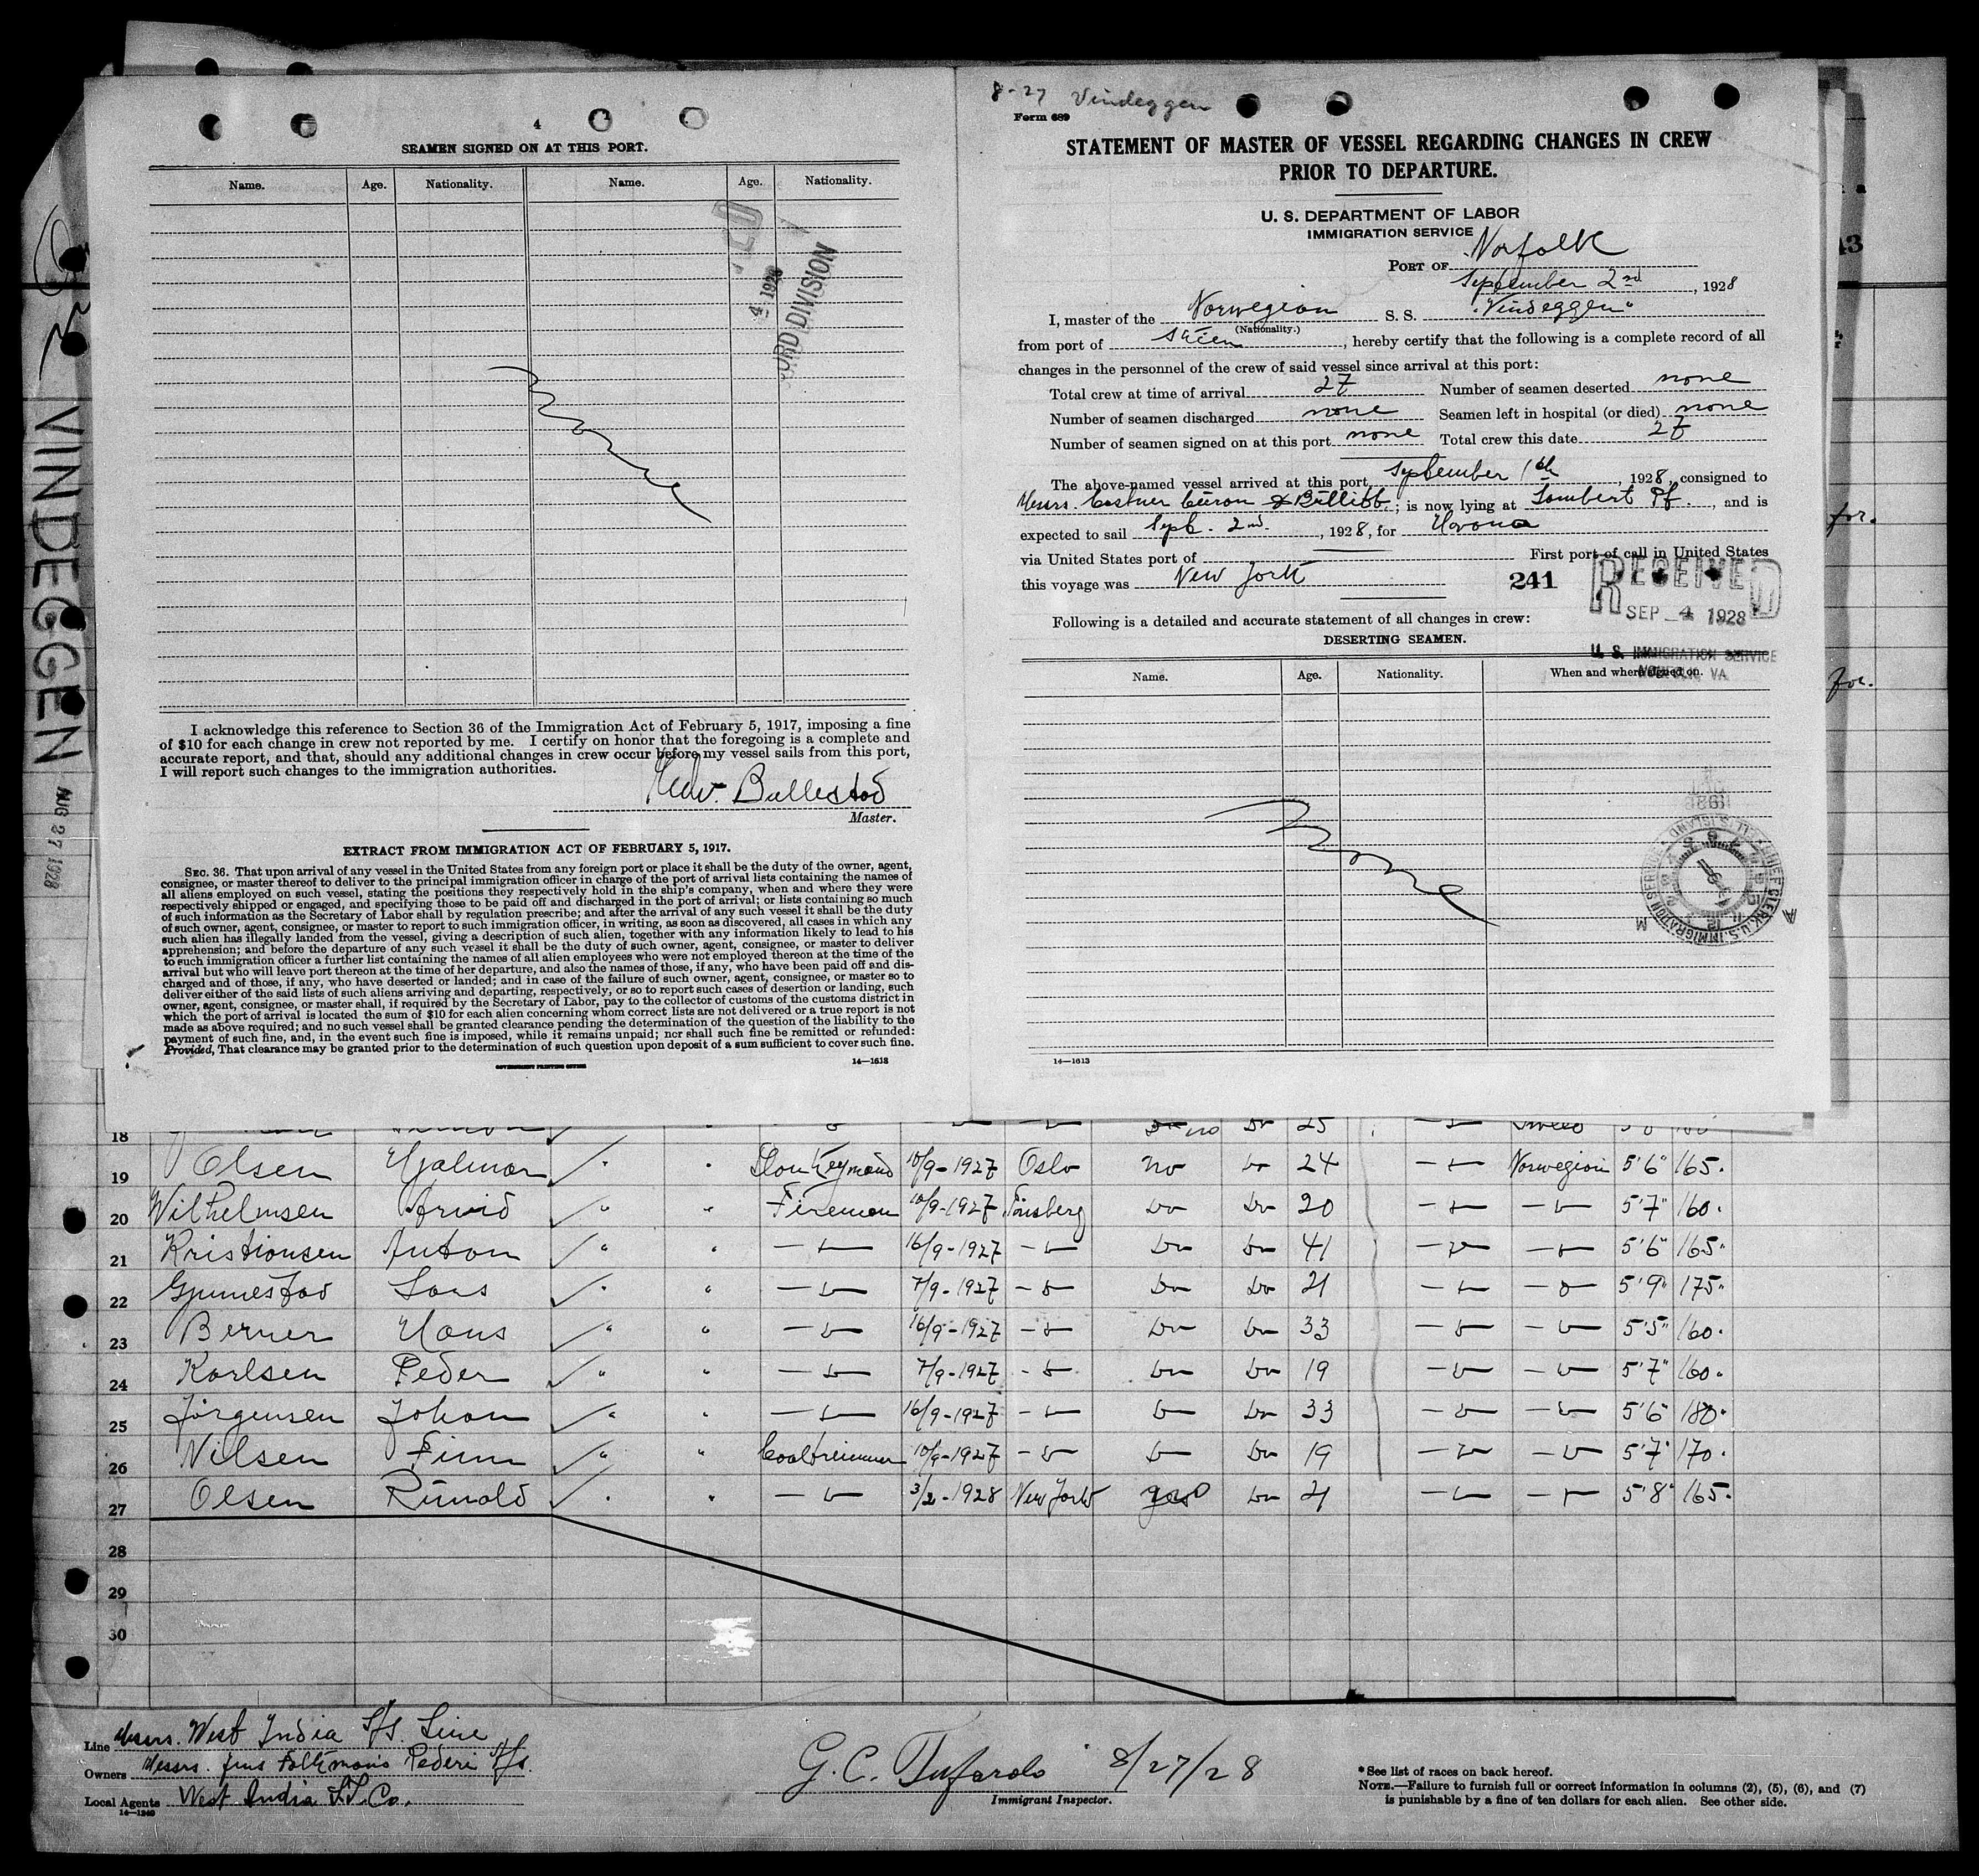 4
SEAMEN SIGNED ON AT THIS PORT.
Name. Age. Nationality. Name. Age. Nationality.
4 1928
DIVISION
None
I acknowledge this reference to Section 36 of the Immigration Act of February 5, 1917, imposing a fine
of $10 for each change in crew not reported by me. I certify on honor that the foregoing is a complete and
accurate report, and that, should any additional changes in crew occur before my vessel sails from this port,
I will report such changes to the immigration authorities.
Bullestad
Master.
EXTRACT FROM IMMIGRATION ACT OF FEBRUARY 5, 1917.
SEC. 36. That upon arrival of any vessel in the United States from any foreign port or place it shall be the duty of the owner, agent,
consignee, or master thereof to deliver to the principal immigration officer in charge of the port of arrival lists containing the names of
all aliens employed on such vessel, stating the positions they respectively hold in the ship's company, when and where they were
respectively shipped or engaged, and specifying those to be paid off and discharged in the port of arrival; or lists containing so much
of such information as the Secretary of Labor shall by regulation prescribe; and after the arrival of any such vessel it shall be the duty
of such owner, agent, consignee, or master to report to such immigration officer, in writing, as soon as discovered, all cases in which any
such alien has illegally landed from the vessel, giving a description of such alien, together with any information likely to lead to his
apprehension; and before the departure of any such vessel it shall be the duty of such owner, agent, consignee, or master to deliver
to such immigration officer a further list containing the names of all alien employees who were not employed thereon at the time of the
arrival but who will leave port thereon at the time of her departure, and also the names of those, if any, who have been paid off and dis-
charged and of those, if any, who have deserted or landed; and in case of the failure of such owner, agent, consignee, or master so to
deliver either of the said lists of such aliens arriving and departing, respectively, or so to report such cases of desertion or landing, such
owner, agent, consignee, or master shall, if required by the Secretary of Labor, pay to the collector of customs of the customs district in
which the port of arrival is located the sum of $10 for each alien concerning whom correct lists are not delivered or a true report is not
made as above required; and no such vessel shall be granted clearance pending the determination of the question of the liability to the
payment of such fine, and, in the event such fine is imposed, while it remains unpaid; nor shall such fine be remitted or refunded:
Provided, That clearance may be granted prior to the determination of such question upon deposit of a sum sufficient to cover such fine.
GOVERNMENT PRINTING OFFICE 14—1613
8-27 Vindeggen
Form 689
STATEMENT OF MASTER OF VESSEL REGARDING CHANGES IN CREW
PRIOR TO DEPARTURE.
U. S. DEPARTMENT OF LABOR
IMMIGRATION SERVICE
PORT OF Norfolk
September 2nd, 1928
I, master of the Norwegian S. S. "Vindeggen"
(Nationality.)
from port of Skien, hereby certify that the following is a complete record of all
changes in the personnel of the crew of said vessel since arrival at this port:
Total crew at time of arrival 27 Number of seamen deserted none
Number of seamen discharged none Seamen left in hospital (or died) none
Number of seamen signed on at this port none Total crew this date 27
The above-named vessel arrived at this port September 1th, 1928, consigned to
Messrs. Castner Curran & Bullitt; is now lying at Lambert Pt., and is
expected to sail Sept. 2nd, 1928, for Havana
via United States port of First port of call in United States
this voyage was New York 241
RECEIVED
SEP 4 1928
U. S. IMMIGRATION SERVICE
NORFOLK, VA
Following is a detailed and accurate statement of all changes in crew:
DESERTING SEAMEN.
Name. Age. Nationality. When and where signed on.
None
CHIEF CLERK, U.S. IMMIGRATION SERVICE ELLIS ISLAND
14—1613
VINDEGGEN AUG 27 1928
43
for.
for.
18 no Do 25
19 Olsen Hjalmar Donkeymand 10/9-1927 Oslo no Do 24 Norwegian 5'6" 165.
20 Wilhelmsen Arvid " " Fireman 10/9-1927 Tönsberg Do Do 20 5'7" 160.
21 Kristiansen Anton " " 16/9-1927 Do Do 41 5'6" 165"
22 Gjunnestad Lars " " 7/9-1927 Do Do 21 5'9" 175"
23 Berner Hans " " 16/9-1927 Do Do 33 5'5" 160.
24 Karlsen Peder " " 7/9-1927 Do Do 19 5'7" 160.
25 Jörgensen Johan " " 16/9-1927 Do 33 5'6" 180"
26 Nilsen Finn " " Coaltrimmer 10/9-1927 Do 19 5'7" 170.
27 Olsen Runald 3/2-1928 New York Do 21 5'8" 165.
28
29
30
Line Messrs. West India S/S. Line
Owners Messrs. Rederi A/S.
Local Agents West India S.S. Co.
14—1240
G. C. Tufarolo 8/27/28
Immigrant Inspector.
*See list of races on back hereof.
NOTE.—Failure to furnish full or correct information in columns (2), (5), (6), and (7)
is punishable by a fine of ten dollars for each alien. See other side.